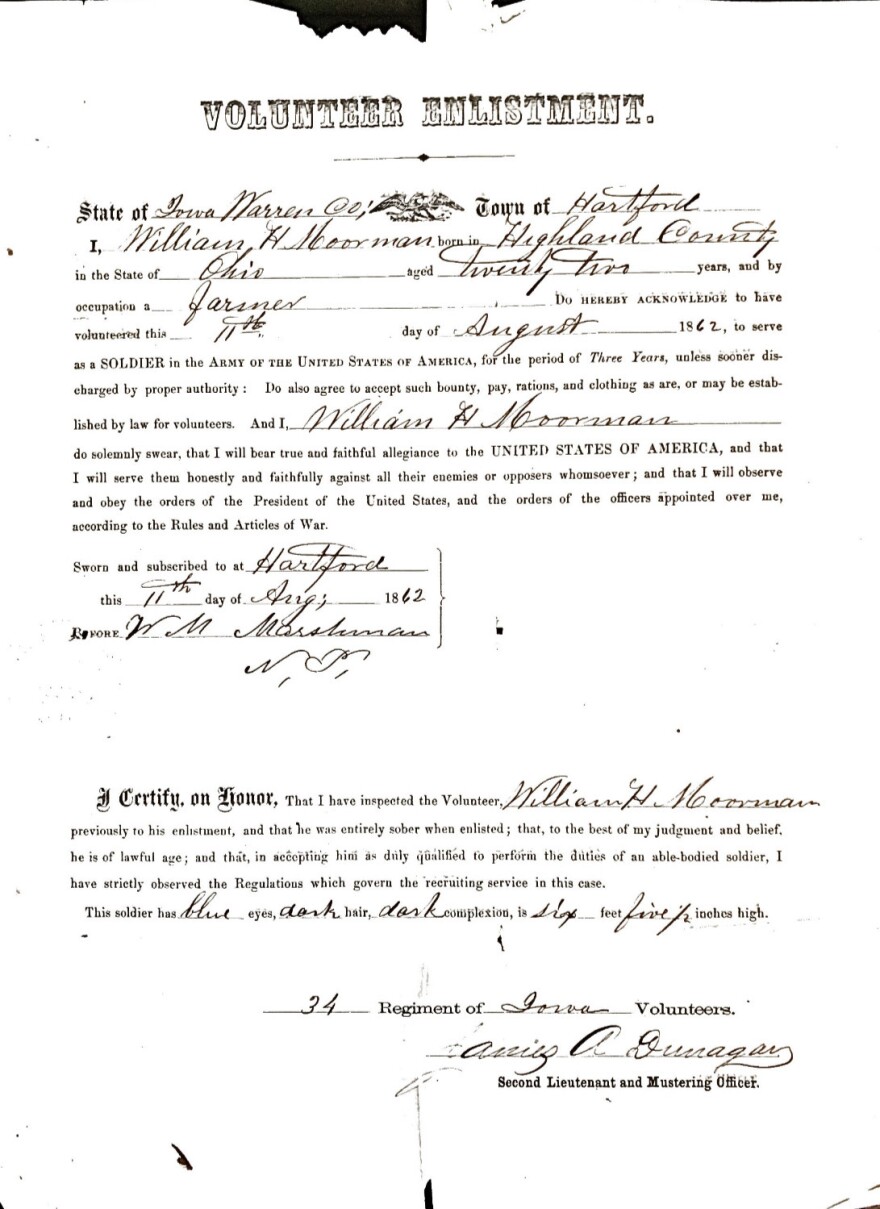 VOLUNTEER ENLISTMENT.
State of Iowa Warren Co; Town of Hartford
I, William H Moorman born in Highland County
in the State of Ohio aged twenty two years, and by
occupation a farmer Do HEREBY ACKNOWLEDGE to have
volunteered this 11th day of August 1862, to serve
as a SOLDIER in the ARMY OF THE UNITED STATES OF AMERICA, for the period of Three Years, unless sooner dis-
charged by proper authority: Do also agree to accept such bounty, pay, rations, and clothing as are, or may be estab-
lished by law for volunteers. And I, William H Moorman
do solemnly swear, that I will bear true and faithful allegiance to the UNITED STATES OF AMERICA, and that
I will serve them honestly and faithfully against all their enemies or opposers whomsoever; and that I will observe
and obey the orders of the President of the United States, and the orders of the officers appointed over me,
according to the Rules and Articles of War.
Sworn and subscribed to at Hartford
this 11th day of Aug; 1862
BEFORE W M Marshman
N, P,
I Certify, on Honor, That I have inspected the Volunteer, William H Moorman
previously to his enlistment, and that he was entirely sober when enlisted; that, to the best of my judgment and belief,
he is of lawful age; and that, in accepting him as duly qualified to perform the duties of an able-bodied soldier, I
have strictly observed the Regulations which govern the recruiting service in this case.
This soldier has blue eyes, dark hair, dark complexion, is six feet five inches high.
34 Regiment of Iowa Volunteers.
A Dunagan
Second Lieutenant and Mustering Officer.